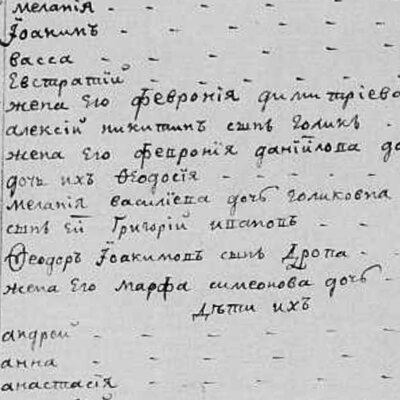 мелапія - - - - -
Іоакимъ - - - - -
васса - - - - -
Евстратій - - - - -
жена Его Феѵронія димитріева
алексій никитинъ сынъ Голикъ -
жена Его Феѵронія данійлова до
дочь ихъ Ѳеодосія - - - - -
меланія василіева дочь Голиковна
сынъ Ей Григорій ивановъ - - -
Ѳеодоръ Іоакимовъ сынъ Дропа - -
жена Его марфа симеонова дочь -
дѣти ихъ
андрей - - - - -
анна - - - - -
анастасія - - - - -